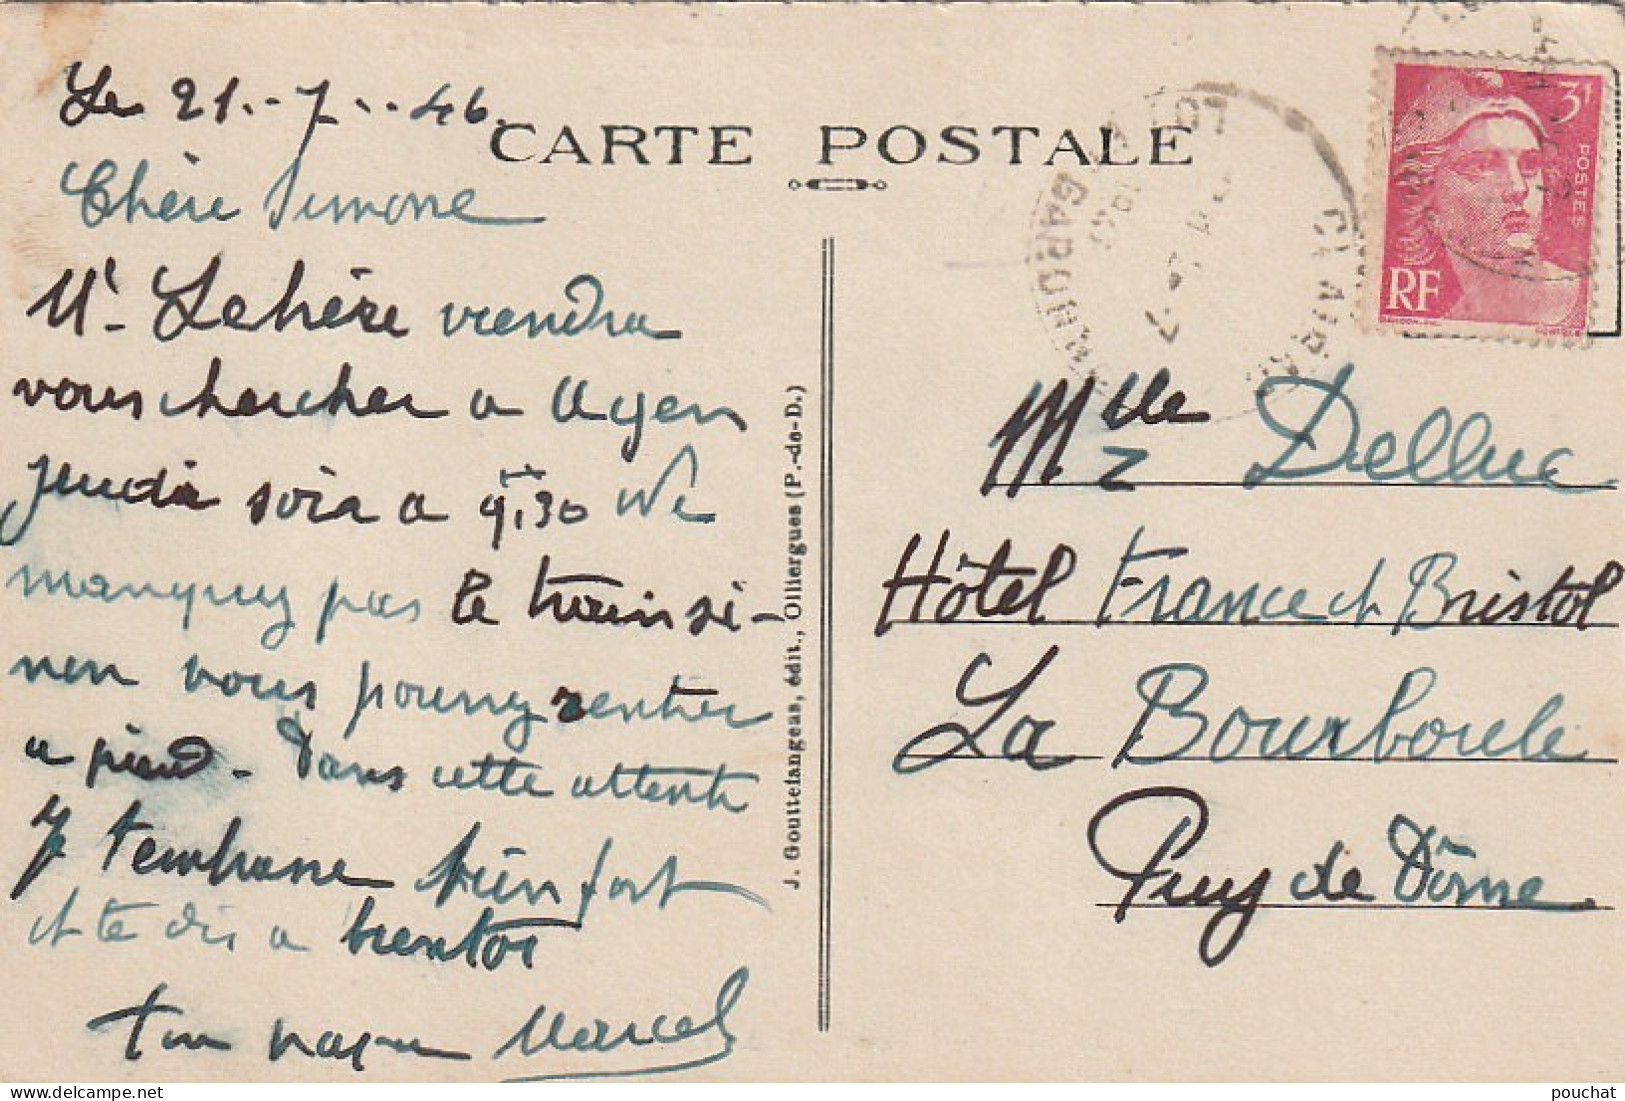 Le 21.-7.-46.
CARTE POSTALE
Chère Simone
Mr Lehère viendra
vous chercher a Agen
jeudi soir a 9h30 Ne
manquez pas le train si-
non vous pouvez rentrer
a pied - Dans cette attente
Je t'embrasse bien fort
et te dis a bientot
ton Marcel
J. Gouttefangeas, édit., Olliergues (P.-de-D.)
3F
POSTES
RF
CLAIRAC
LOT & GARONNE
Mlle Delluc
Hôtel France et Bristol
La Bourboule
Puy de Dôme.
pouchat